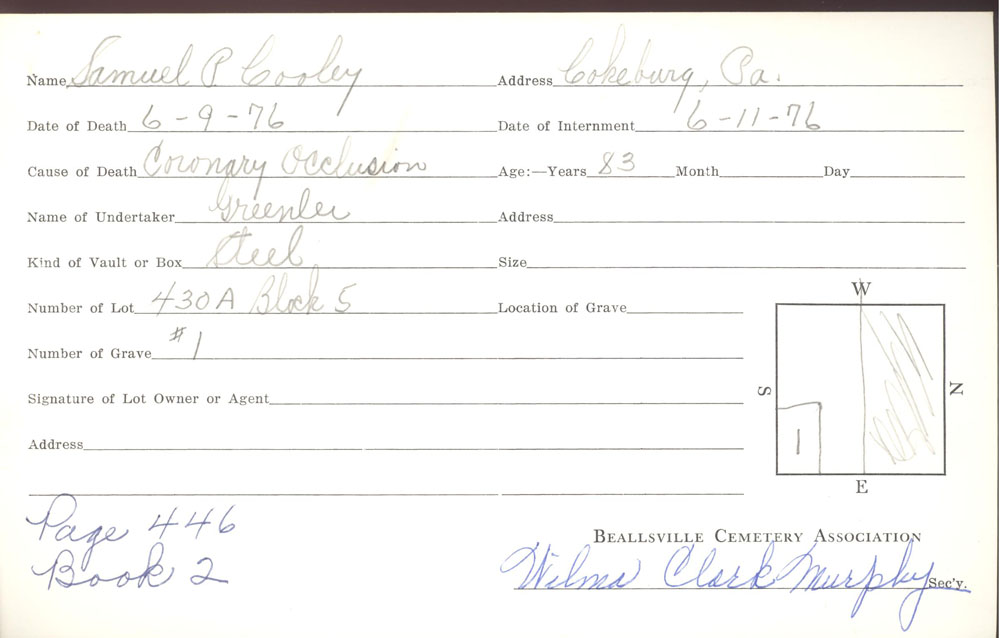 Name Samuel P. Cooley Address Cokeburg, Pa.
Date of Death 6-9-76 Date of Internment 6-11-76
Cause of Death Coronary Occlusion Age:—Years 83 Month Day
Name of Undertaker Greenlee Address
Kind of Vault or Box Steel Size
Number of Lot 430A Block 5 Location of Grave
Number of Grave #1
Signature of Lot Owner or Agent
Address
W
S
N
1
E
Page 446
Book 2
BEALLSVILLE CEMETERY ASSOCIATION
Wilma Clark Murphy Sec'y.